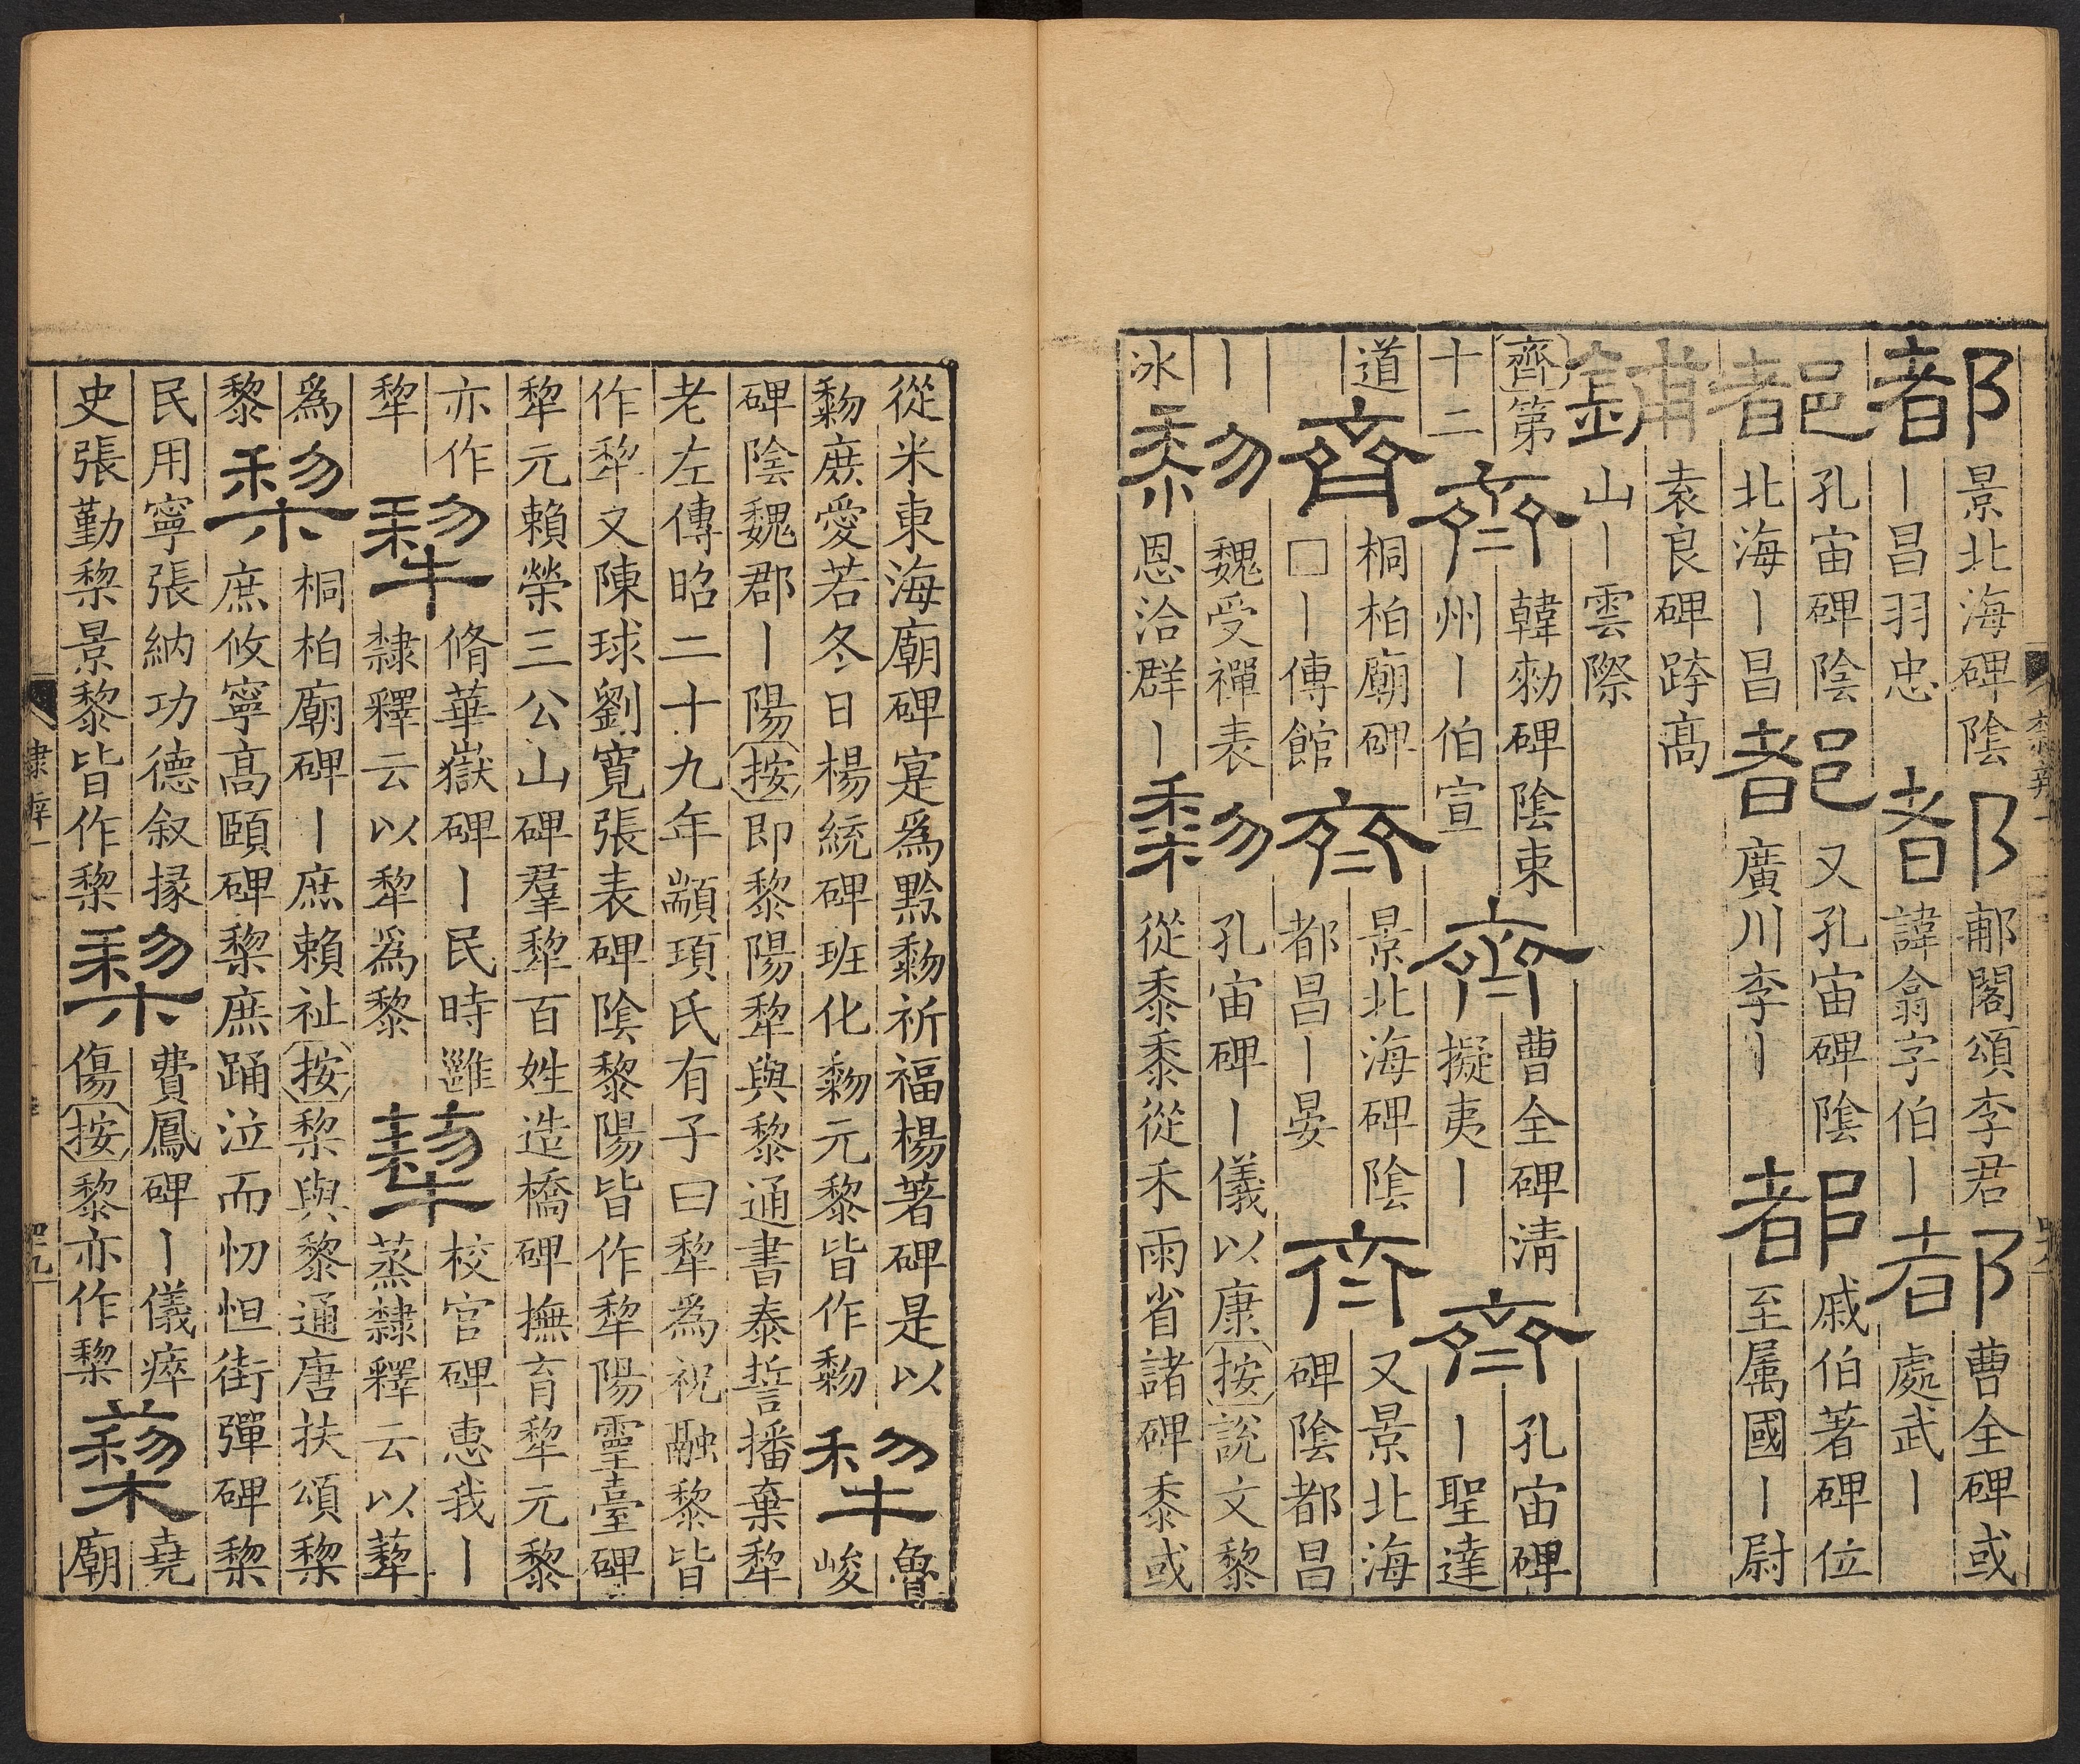 都
景北海碑陰
丨昌羽忠
都
郙閣頌李君
諱翕字伯丨
都
曹全碑或
處武丨
䣝
孔宙碑陰
北海丨昌
䣝
又孔宙碑陰
廣川李丨
都
戚伯著碑位
至属國丨尉
鋪
袁良碑跱高
山丨雲際
齊第
十二
齊
韓勑碑陰東
州丨伯宣
齊
曹全碑清
擬夷丨
齊
孔宙碑
丨聖達
道
齊
桐柏廟碑
□丨傳館
齊
景北海碑陰
都昌丨晏
齊
又景北海
碑陰都昌
丨
冰
䵩
魏受禪表
恩洽群丨
䵩
孔宙碑丨儀以康按說文黎
從黍黍從禾雨省諸碑黍或
從米東海廟碑寔爲黔䵩祈福楊著碑是以
䵩庶愛若冬日楊統碑班化䵩元黎皆作䵩
犂
魯
峻
碑陰魏郡丨陽按即黎陽犂與黎通書泰誓播棄犂
老左傳昭二十九年顓頊氏有子曰犂爲祝融黎皆
作犂文陳球劉寬張表碑陰黎陽皆作犂陽靈臺碑
犂元賴榮三公山碑羣犂百姓造橋碑撫育犂元黎
亦作
犂
犂
脩華嶽碑丨民時雝
隸釋云以犂爲黎
犂
校官碑惠我丨
蒸隸釋云以犂
爲
黎
棃
桐柏廟碑丨庶賴祉按棃與黎通唐扶頌棃
庶攸寧高頤碑棃庶踊泣而忉怛街彈碑棃
民用寧張納功德叙掾
史張勤棃景黎皆作棃
棃
費鳳碑丨儀瘁
傷按黎亦作棃
棃
堯
廟
隸辨一